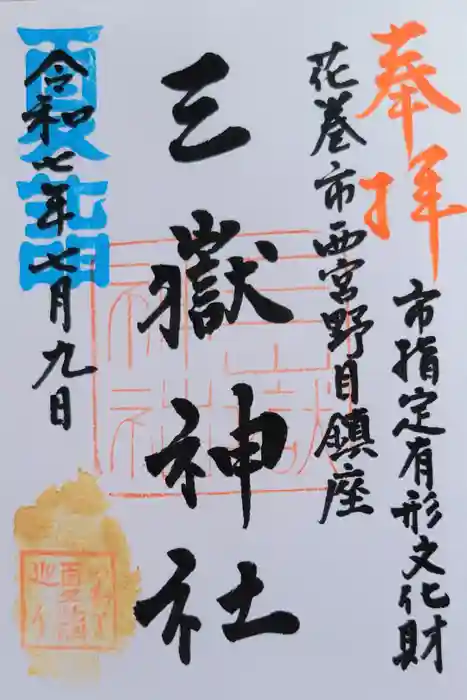 奉拝
市指定有形文化財
花巻市西宮野目鎮座
三嶽神社
三嶽神社
令和七年七月九日